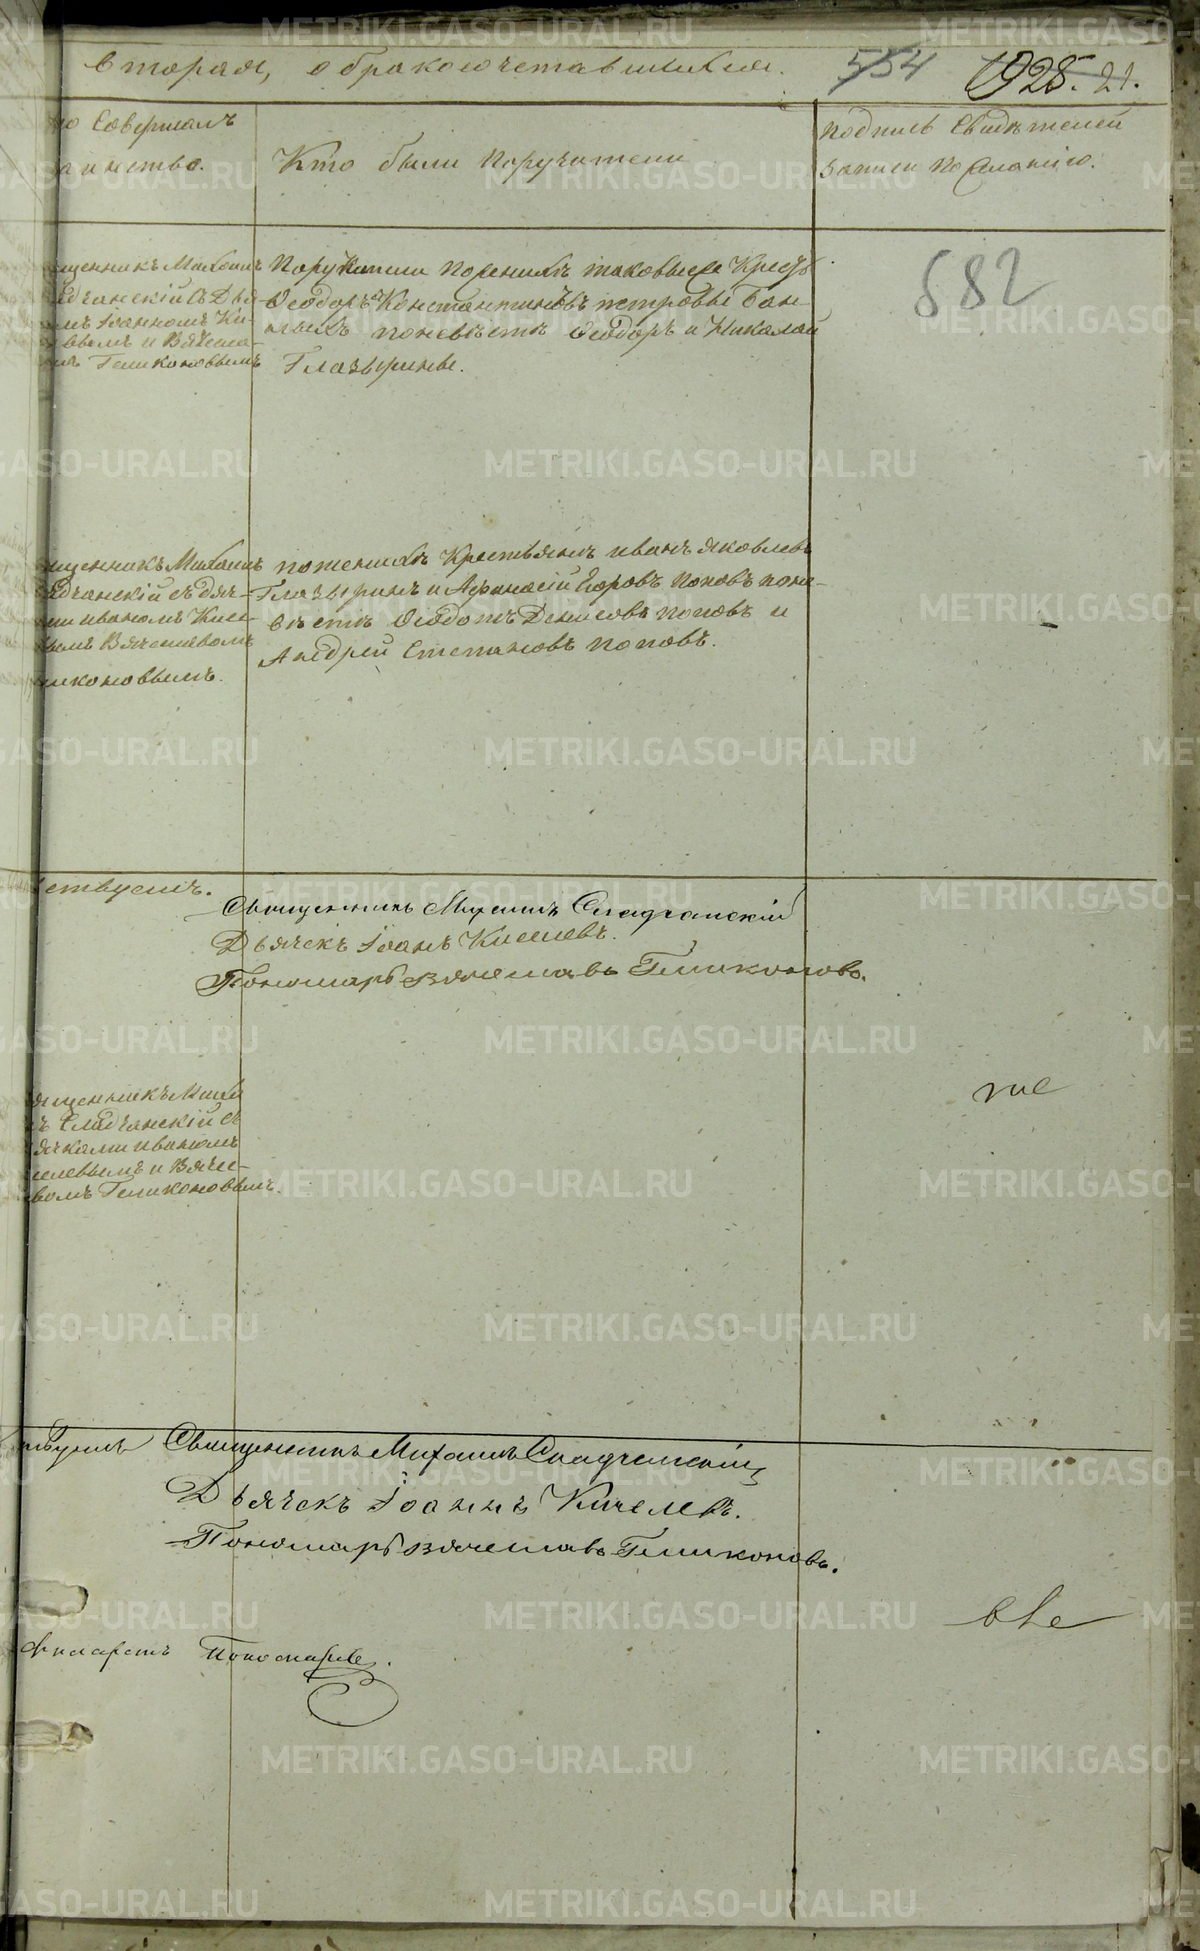 вторая, о бракосочетавшихся.
554 1925. 21.
то Совершалъ
аинство.
Кто были Поручители
подпись Свидѣтелей
записи по желанію.
582
щенникъ Михаилъ
дчанскій съ Дья-
мъ Іоанномъ Ки-
вымъ и Вячесла-
Геликоновымъ
Поручители по женихѣ таковые Крест
Ѳеодоръ Константиновъ Петровы
поневѣстѣ Ѳеодоръ и Николай
Глазырины.
щенникъ Михаилъ
дчанскій съ дьяч-
ми иваномъ Кисе-
вымъ Вячеславомъ
ликоновымъ.
поженихѣ Крестьянъ иванъ яковлевъ
Глазыринъ и Афонасій Егоровъ Поповъ поне-
вѣстѣ Ѳеодотъ Денисовъ поповъ и
Андрей Степановъ поповъ.
ствуетъ.
Священникъ Михаилъ Сладчанскій
Дьячекъ Іоанъ Киселевъ.
Пономарь Вячеславъ Геликоновъ.
ященникъ Михаи
ъ Сладчанскій съ
ячками иваномъ
селевымъ и Вяче-
вомъ Геликоновымъ.
Священникъ Михаилъ Сладчанскій
Дьячекъ Іоаннъ Киселевъ.
Пономарь Вячеславъ Геликоновъ.
Филаретъ Пономаревъ.
METRIKI.GASO-URAL.RU